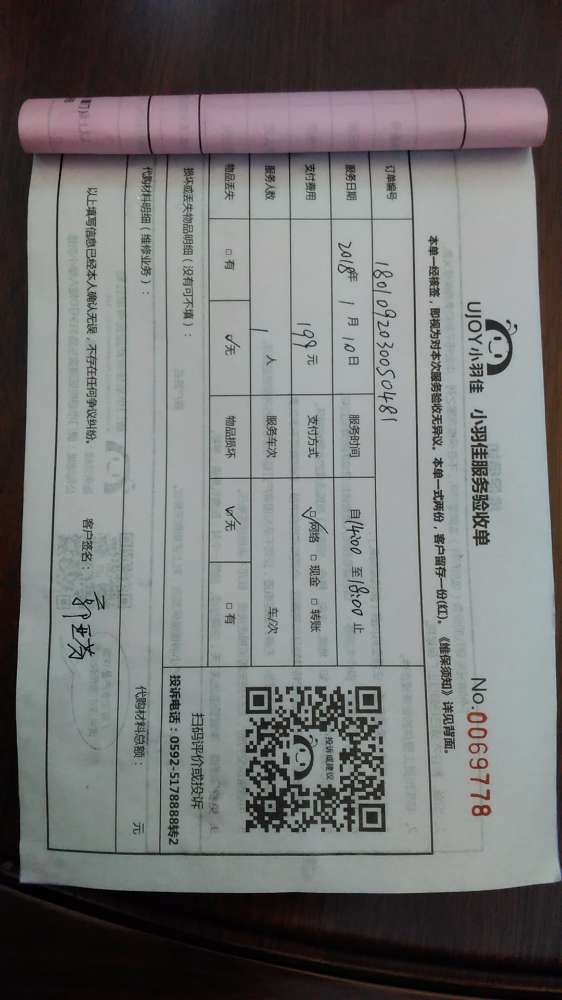 UJOY小羽佳 小羽佳服务验收单
No.0069778
本单一经核签，即视为对本次服务验收无异议。本单一式两份，客户留存一份(红)。《维保须知》详见背面。
订单编号 18010920300050481
服务日期 2018年 1月 10日 服务时间 自14:00 至18:00止
支付费用 199元 支付方式 ☑网络 □现金 □转账
服务人数 1人 服务车次 车/次
物品丢失 □有 ☑无 物品损坏 ☑无 □有
损坏或丢失物品明细（没有可不填）：
代购材料明细（维修业务）： 代购材料总额： 元
以上填写信息已经本人确认无误，不存在任何争议纠纷。
客户签名：
投诉或建议
扫码评价或投诉
投诉电话：0592-5178888转2